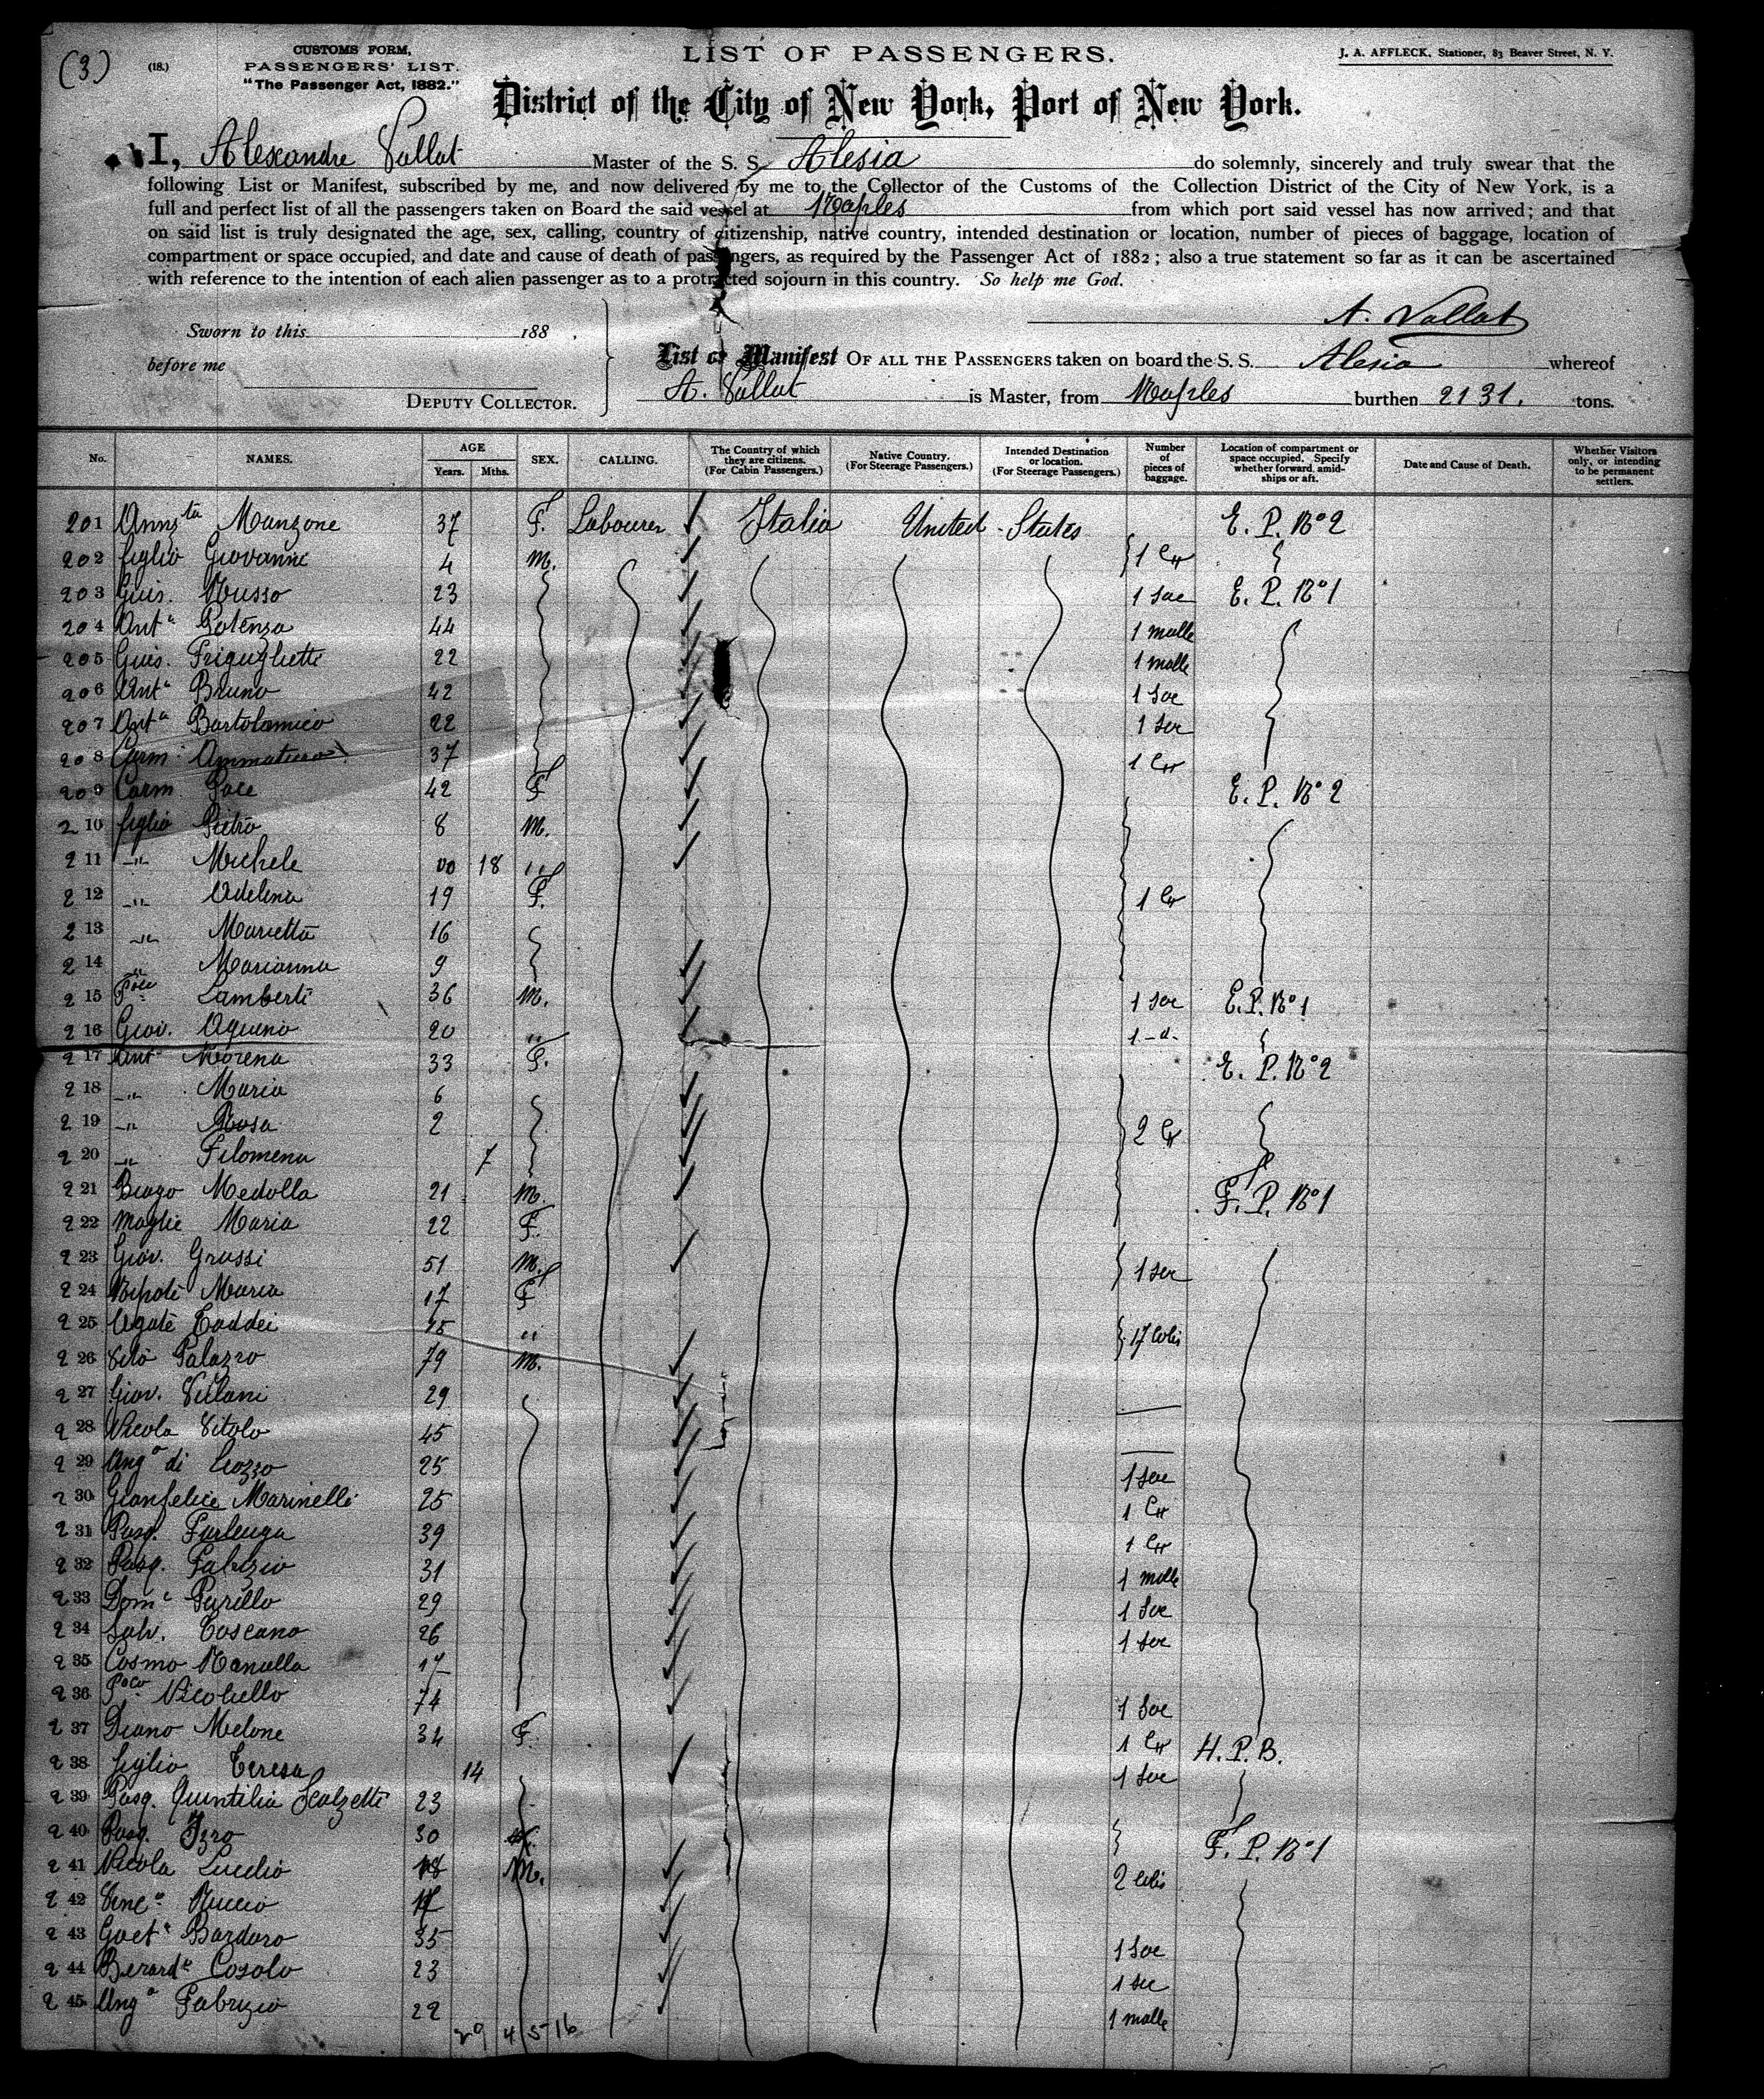 (3)
(18.)
CUSTOMS FORM,
PASSENGERS' LIST.
"The Passenger Act, 1882."
LIST OF PASSENGERS.
J. A. AFFLECK, Stationer, 83 Beaver Street, N. Y.
District of the City of New York, Port of New York.
I, Alexandre Vallat Master of the S. S. Alesia do solemnly, sincerely and truly swear that the
following List or Manifest, subscribed by me, and now delivered by me to the Collector of the Customs of the Collection District of the City of New York, is a
full and perfect list of all the passengers taken on Board the said vessel at Naples from which port said vessel has now arrived; and that
on said list is truly designated the age, sex, calling, country of citizenship, native country, intended destination or location, number of pieces of baggage, location of
compartment or space occupied, and date and cause of death of passengers, as required by the Passenger Act of 1882; also a true statement so far as it can be ascertained
with reference to the intention of each alien passenger as to a protracted sojourn in this country. So help me God.
A. Vallat
Sworn to this 188 .
before me
DEPUTY COLLECTOR.
List or Manifest OF ALL THE PASSENGERS taken on board the S. S. Alesia whereof
A. Vallat is Master, from Naples burthen 2131. tons.
No. NAMES. AGE Years. Mths. SEX. CALLING. The Country of which they are citizens. (For Cabin Passengers.) Native Country. (For Steerage Passengers.) Intended Destination or location. (For Steerage Passengers.) Number of pieces of baggage. Location of compartment or space occupied. Specify whether forward, amidships or aft. Date and Cause of Death. Whether Visitors only, or intending to be permanent settlers.
201 Annzta Manzone 37 F. Labourer Italia United States E. P. No 2
202 figlio Giovanni 4 M. 1 Cr
203 Guis. Musso 23 1 Sac E. P. No 1
204 Anta Potenza 44 1 malle
205 Guis. Frigugliette 22 1 malle
206 Anta Bruno 42 1 Sac
207 Anta Bartolamieo 22 1 Sac
208 37 1 Cr
209 Carm Pace 42 F E. P. No 2
210 figlio Pietro 8 M.
211 -"- Michele 00 18 "
212 -"- Adelina 19 F. 1 Cr
213 -"- Marietta 16
214 -"- Marianna 9
215 Lamberti 36 M. 1 Sac E. P. No 1
216 Giov. Aquino 20 " 1 -d-
217 Ant Morena 33 F. E. P. No 2
218 -"- Maria 6
219 -"- Rosa 2 2 Cr
220 -"- Filomena 7
221 Biago Medolla 21 M. F. P. No 1
222 Moglie Maria 22 F.
223 Giov. Grassi 51 M. 1 Sac
224 Nipoti Maria 17 F
225 Agate Taddei " 17 Colis
226 Vito Palazzo 79 M.
227 Giov. 29
228 Nicola Vitolo 45
229 Ango di 25 1 Sac
230 Gianfelice Marinelli 25 1 Cr
231 Pasq. Furlenga 39 1 Cr
232 Pasq. Fabrizio 31 1 malle
233 Doma Parillo 29 1 Sac
234 Salv. Toscano 26 1 Sac
235 Cosmo Nanulla 17
236 Nicolielло 74 1 Sac
237 Diano Melone 34 F. 1 Cr H. P. B.
238 figlio Teresa 14 1 Sac
239 Pasq. Quintilia Scalzetti 23
240 Pasq. Izzo 30 F. P. No 1
241 Nicola Lucilio 18 M. 2 colis
242 Vinco Nuccio
243 Gaeta Bardaro 35 1 Sac
244 Berardo Cosolo 23 1 Sac
245 Ango Fabrizio 22 1 malle
29 4 5 16